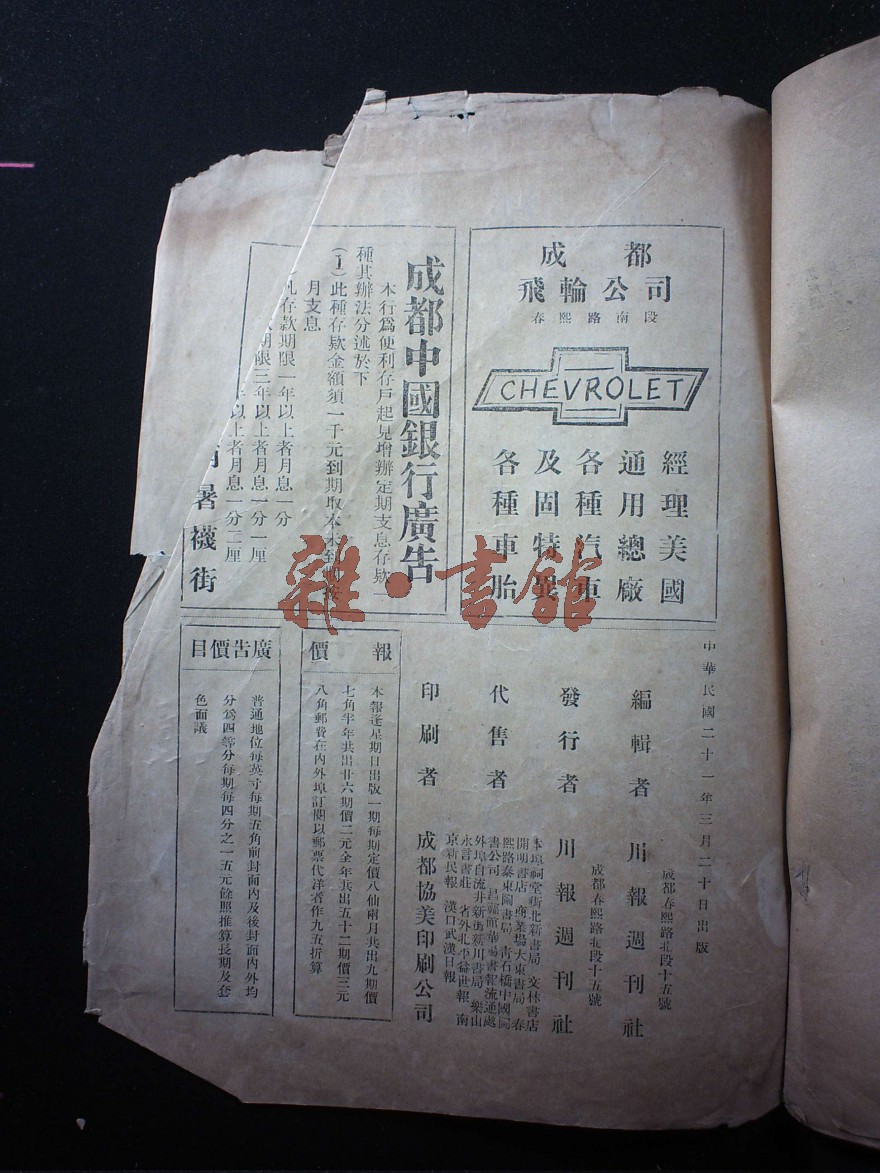 成都
飛輪公司
春熙路南段
CHEVROLET
經理美國
通用總廠
各種汽車
及固特異
各種車胎
成都中國銀行廣告
本行爲便利存戶起見增辦定期支息存款一
種其辦法分述於下
(1)此種存款金額須一千元到期取本未到期按
月支息
凡存款期限一年以上者月息一分
期限三年以上者月息一分一厘
年以上者月息一分二厘
暑襪街
雜·書館
中華民國二十一年三月二十日出版
編輯者 川報週刊社
成都春熙路北段十五號
發行者 川報週刊社
成都春熙路北段十五號
代售者
本埠祠堂街北新書局 文林書店
開明書店 商業場大東書局 春
熙路泰東圖書局 青石橋中國圖
書公司 昌福館華陽書報流通處
外埠自流井新街新川書局 樂山
永言書莊 省外北平益世報 南
京新民報 漢口武漢日報
印刷者 成都協美印刷公司
報價
本報逢星期日出版一期每期定價八仙兩月共出九期價
七角半年共出廿六期價二元全年共出五十二期價三元
八角郵費在內外埠訂閱以郵票代洋者作九五折算
廣告價目
普通地位每英寸每期五角前封面內及後封面內外均
分爲四等分每期每四分之一五元餘照推算長期及套
色面議